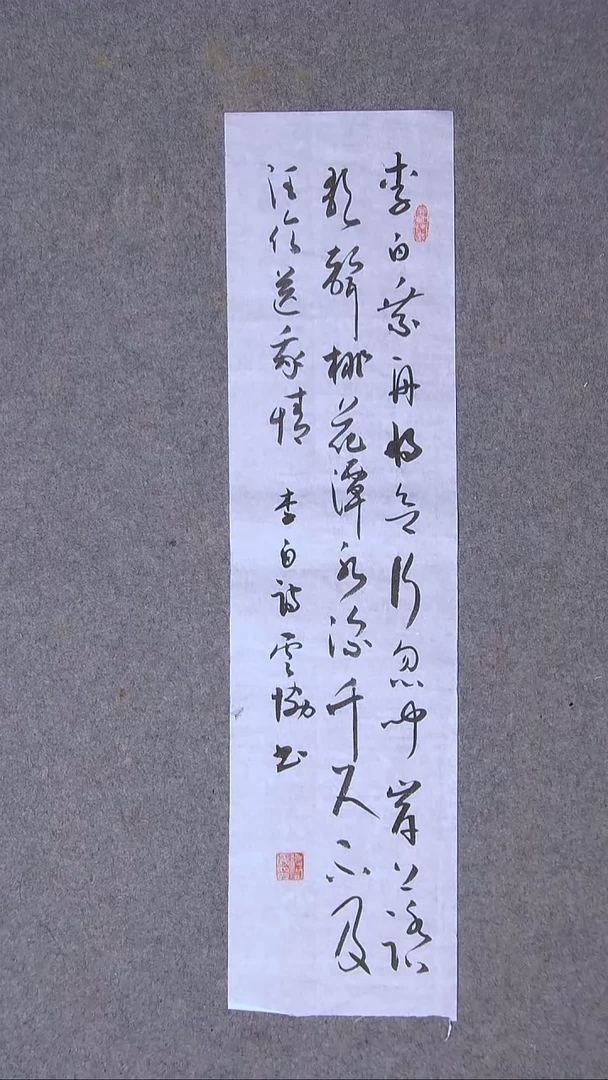 李白乘舟將欲行忽聞岸上踏
歌聲桃花潭水深千尺不及
汪倫送我情 李白詩 雲協书